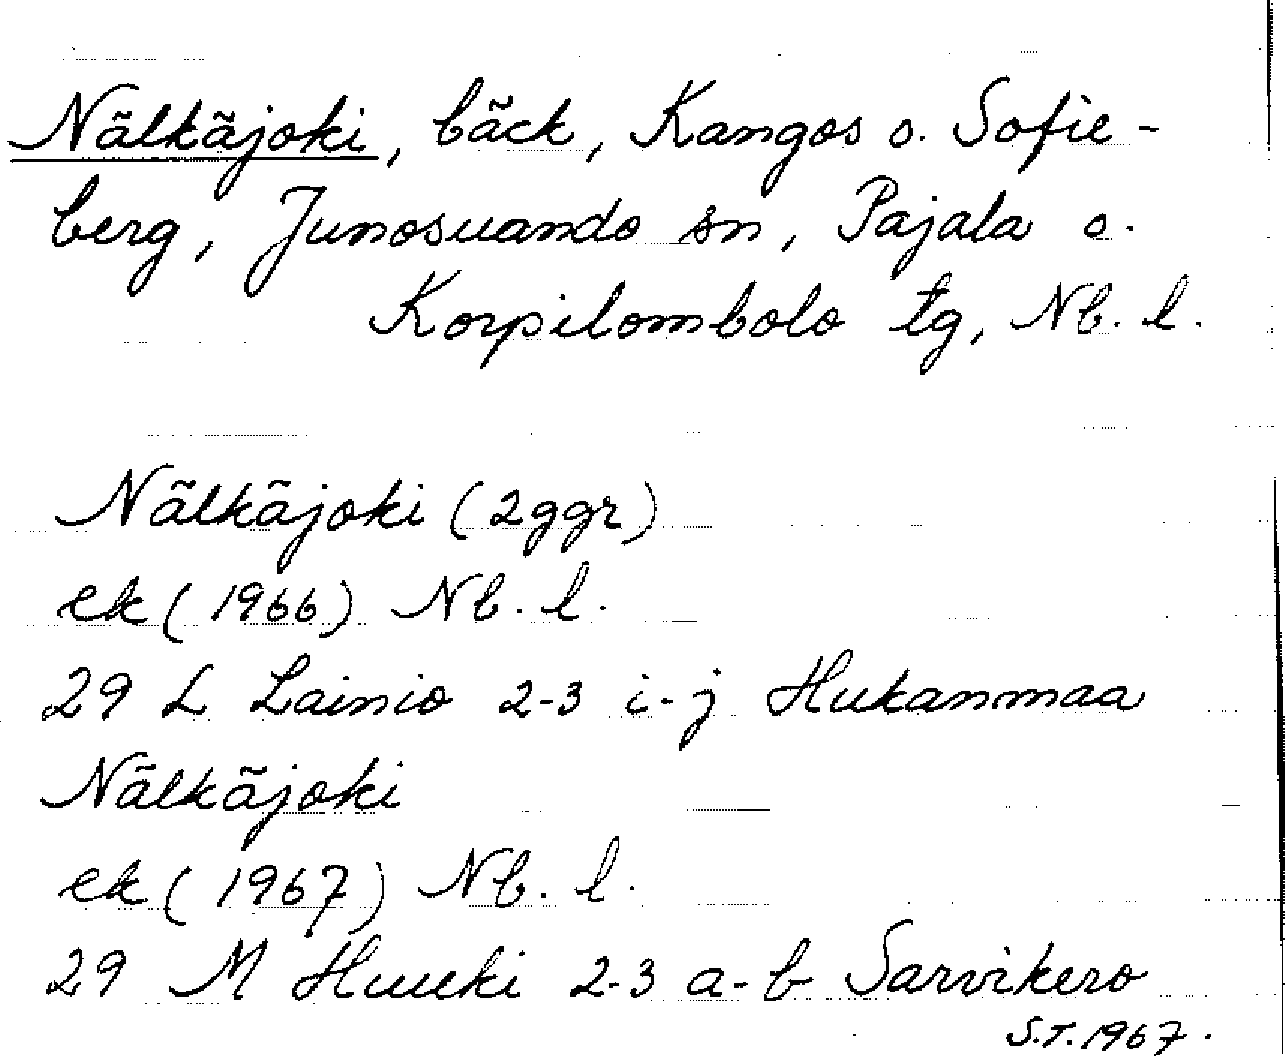 Nälkäjoki, bäck, Kangos o. Sofie-
berg, Junosuando sn, Pajala o.
Korpilombolo tg, Nb. l.
Nälkäjoki (2ggr)
ek (1966) Nb. l.
29 L Lainio 2-3 i-j Hukanmaa
Nälkäjoki
ek (1967) Nb. l.
29 M Huuki 2-3 a-b Sarvikero
S.T. 1967.